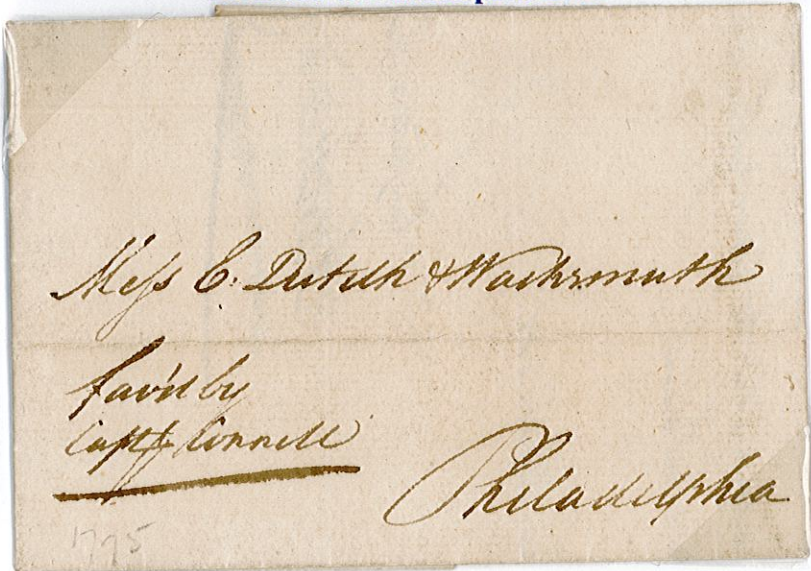 Mess C. Dutilh & Wachsmuth
fav'd by
Capt Connell
Philadelphia
1795